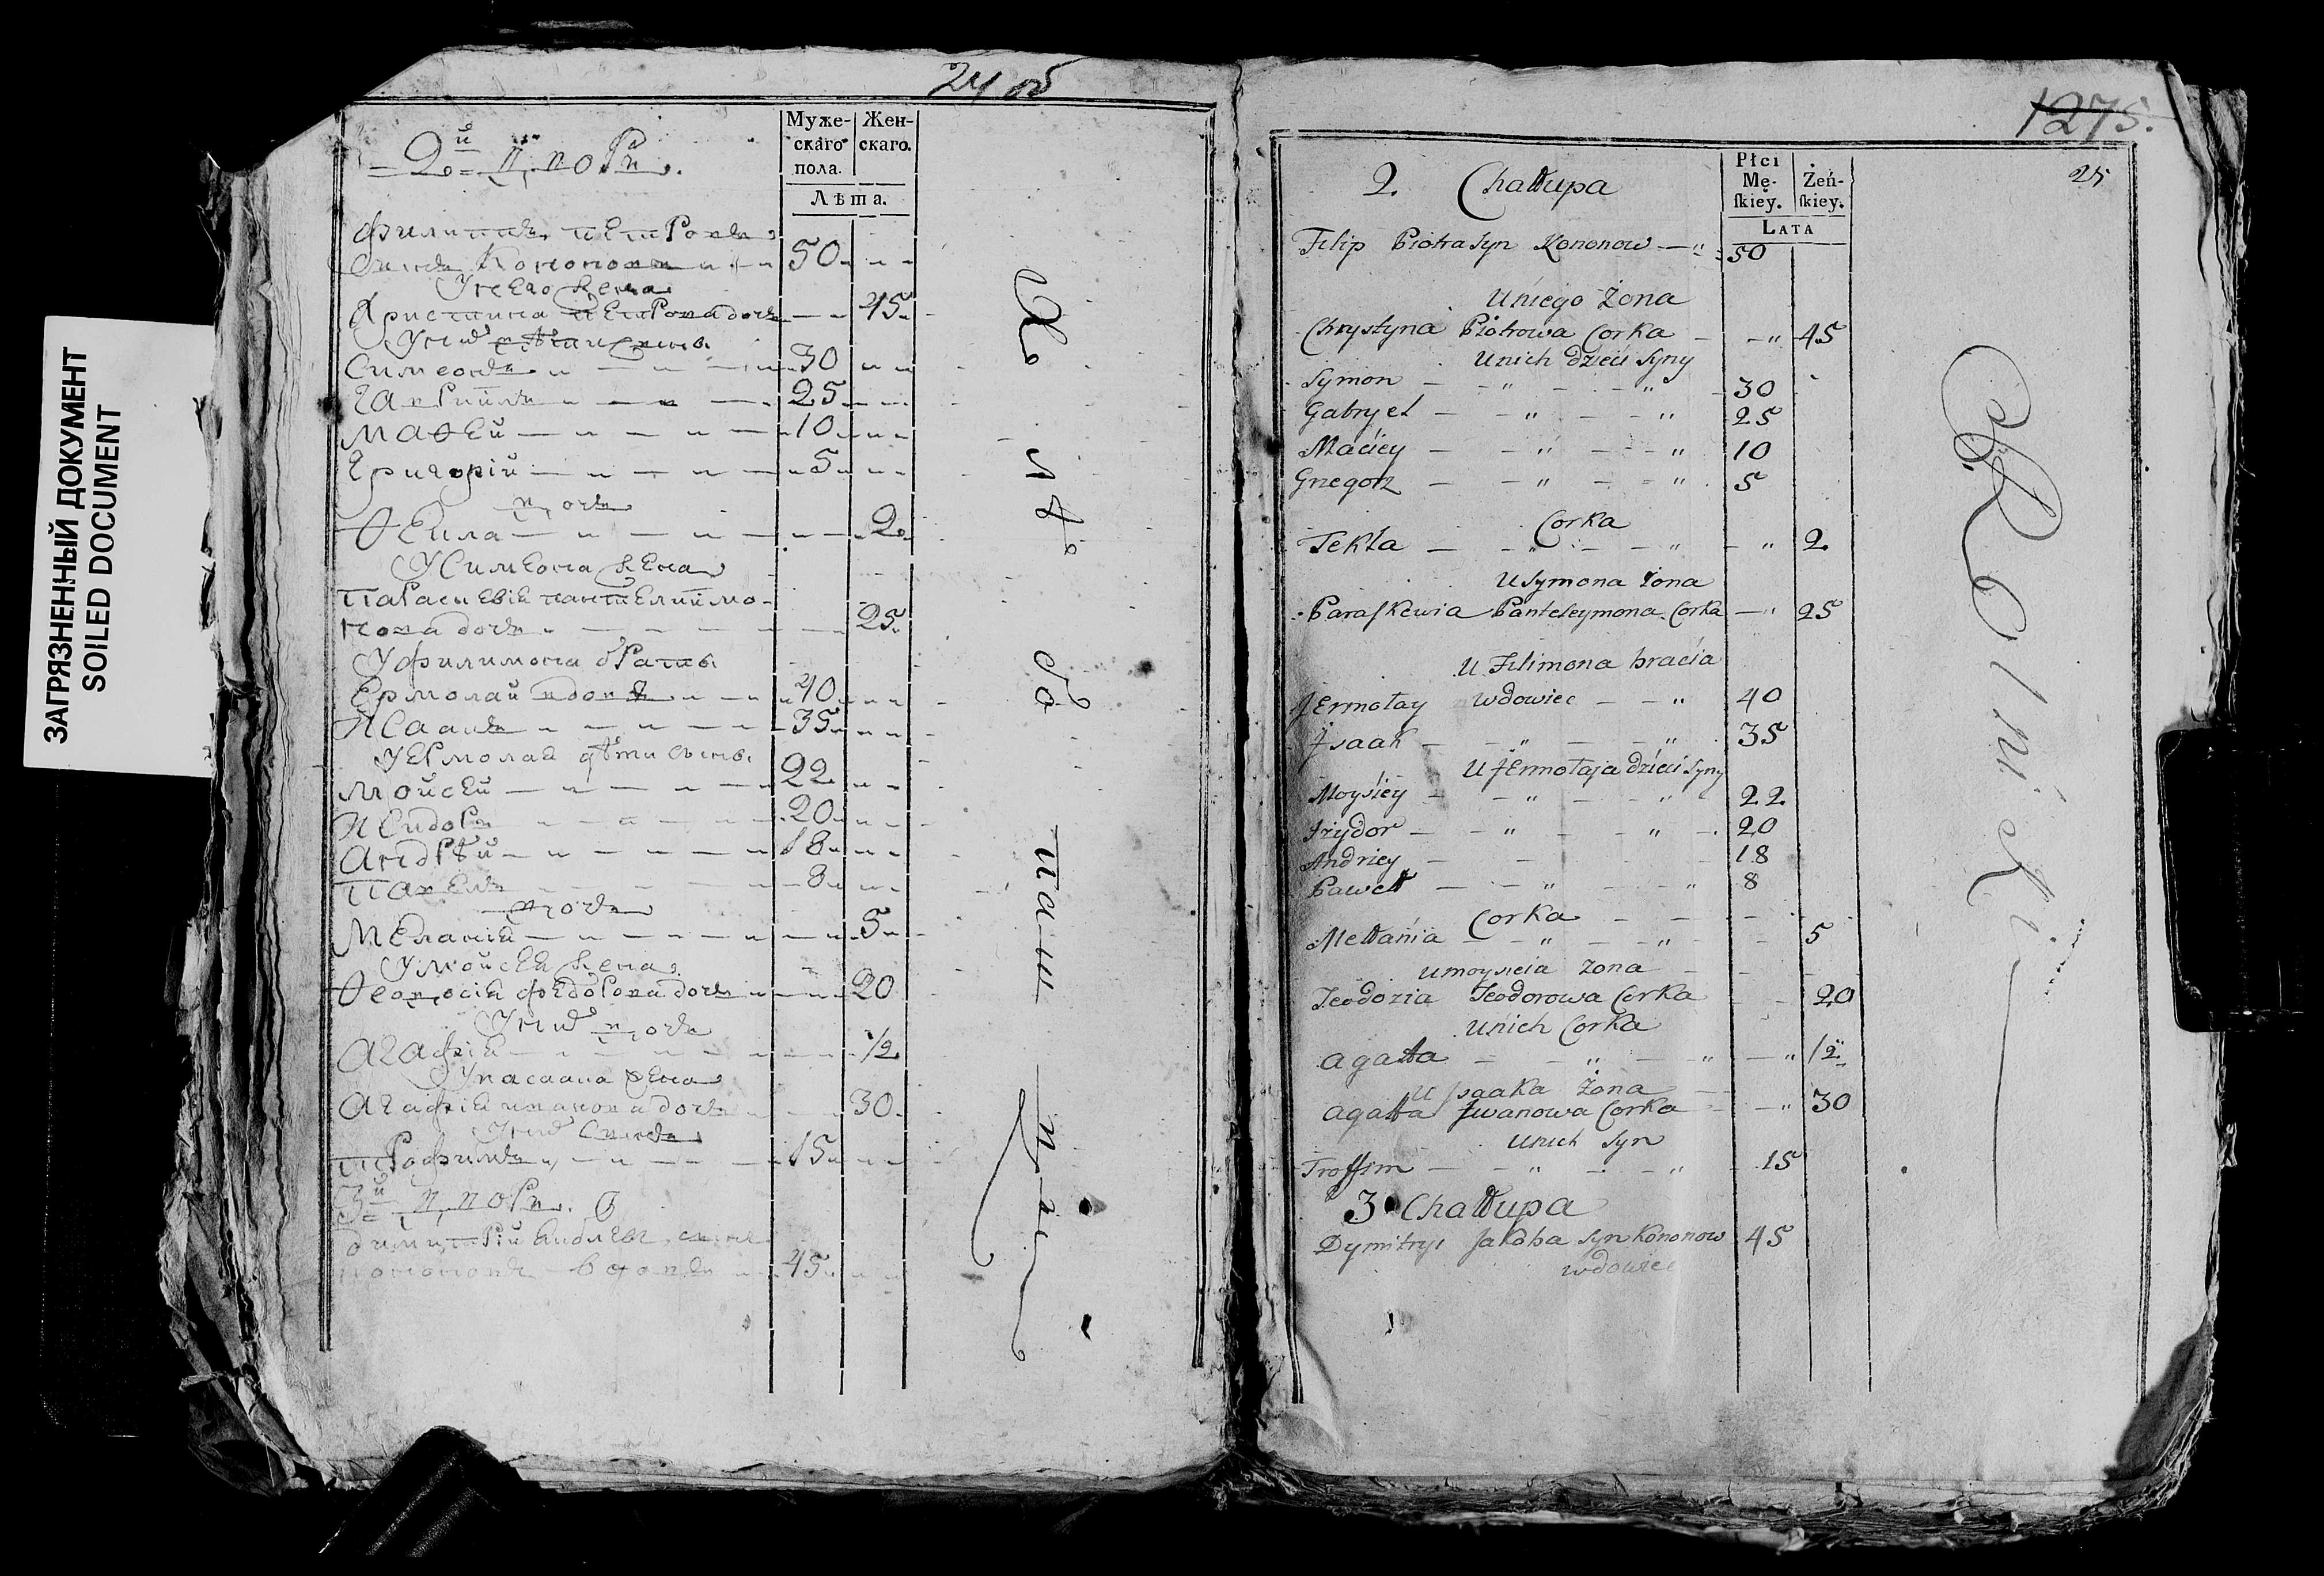 ЗАГРЯЗНЕННЫЙ ДОКУМЕНТ
SOILED DOCUMENT
24 об
Муже-скаго пола.
Жен-скаго.
Лѣта.
2й Двора.
Филиппъ Петровъ
Сынъ Кононовъ 50
У него Жена
Христина Петрова дочь 45
У них дѣти Сыны
Симеонъ 30
Гавриилъ 25
Маѳей 10
Григорій 5
Дочь
Ѳекла 2
У Симеона Жена
Параскевія Пантелиймо-
нова дочь 25
У Филимона братья
Ермолай вдовъ 40
Исаакъ 35
У Ермолая дѣти сыны
Мойсей 22
Исидоръ 20
Андрѣй 18
Павелъ 8
Дочь
Меланія 5
У Мойсея Жена
Ѳеодосія Федорова дочь 20
У них дочь
Агафія 1/2
У Исаака Жена
Агафія Иванова дочь 30
У них Сынъ
Трофимъ 15
3й Двора.
Димитрій сынъ
Кононовъ вдовъ 45
Хлѣбопашцы
1275.
25
Płci Mę-ſkiey.
Żeń-ſkiey.
LATA
2. Chałłupa
Filip Piotra Syn Kononow 50
U niego Żona
Chrystyna Piotrowa Corka 45
U nich dzieci Syny
Symon 30
Gabryel 25
Maciey 10
Grzegorz 5
Corka
Tekla 2
U Symona Żona
Paraſkewia Panteleymona Corka 25
U Filimona bracia
Jermołay wdowiec 40
Jsaak 35
U Jermołaja dzieci Syny
Moysiey 22
Izydor 20
Andriey 18
Paweł 8
Corka
Mełłania 5
U moysieia Żona
Teodozia Teodorowa Corka 20
U nich Corka
Agatta 1/2
U Jsaaka Żona
Agatta Jwanowa Corka 30
U nich Syn
Troffim 15
3 Chałłupa
Dymitryi Jakóba Syn Kononow 45
wdowiec
Rolniki